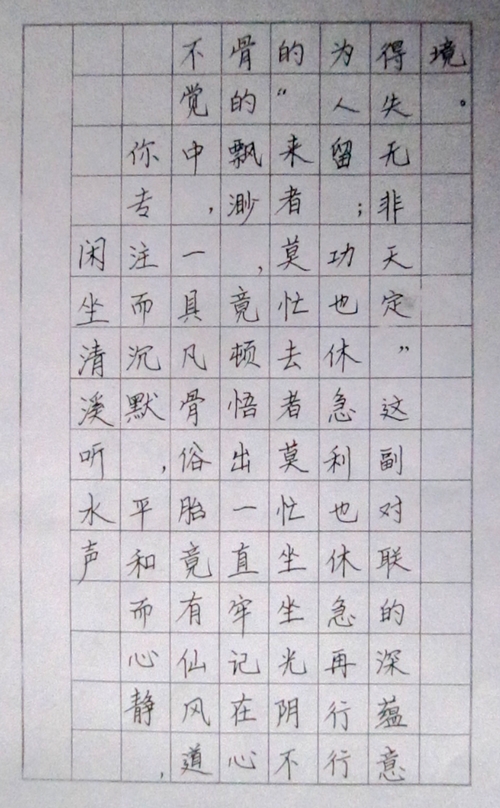 闲坐清溪听水声
你专注而沉默,平和而心静,
不觉中,一具凡骨俗胎竟有仙风道
骨的飘渺,竟顿悟出一直牢记在心
的“来者莫忙去者莫忙坐坐光阴不
为人留;功也休急利也休急再行行
得失无非天定”这副对联的深蕴意
境。